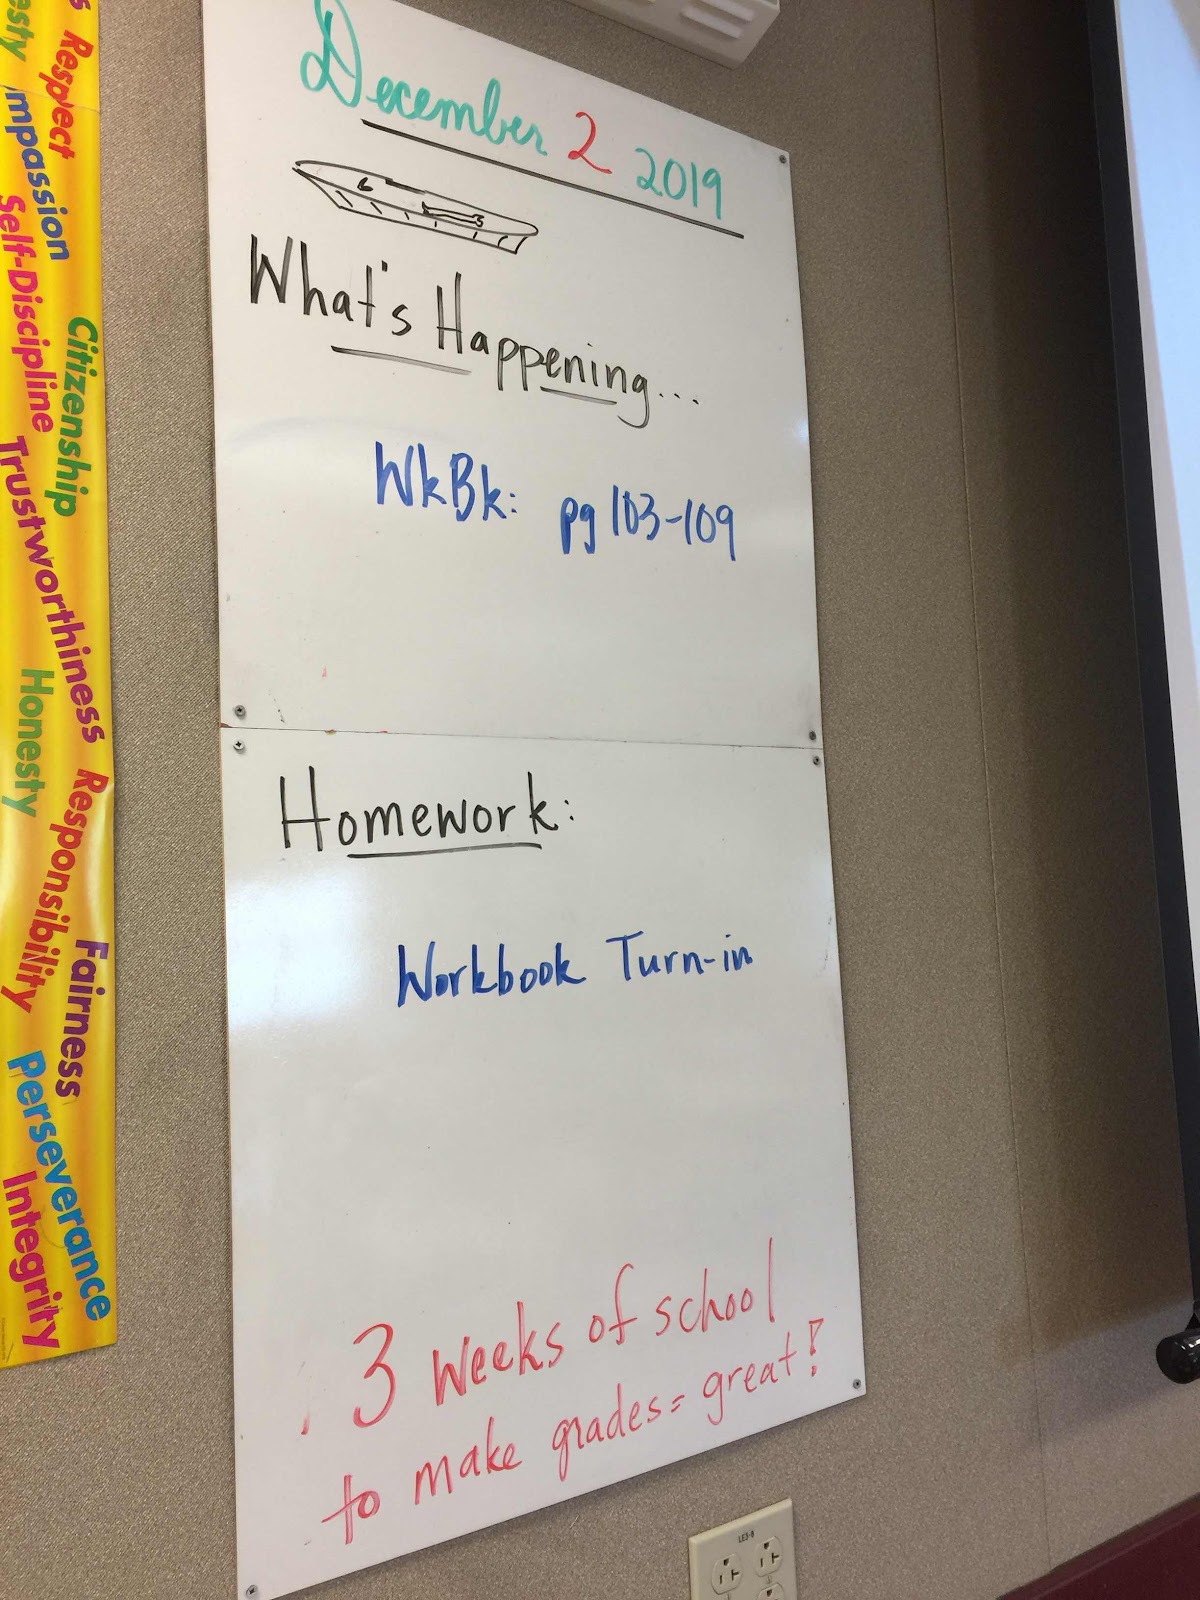 December 2 2019
What's Happening...
WkBk: pg 103-109
Homework:
Workbook Turn-in
3 weeks of school
to make grades = great!
Respect
Self-Discipline
Citizenship
Trustworthiness
Honesty
Responsibility
Fairness
Perseverance
Integrity
LE3-8